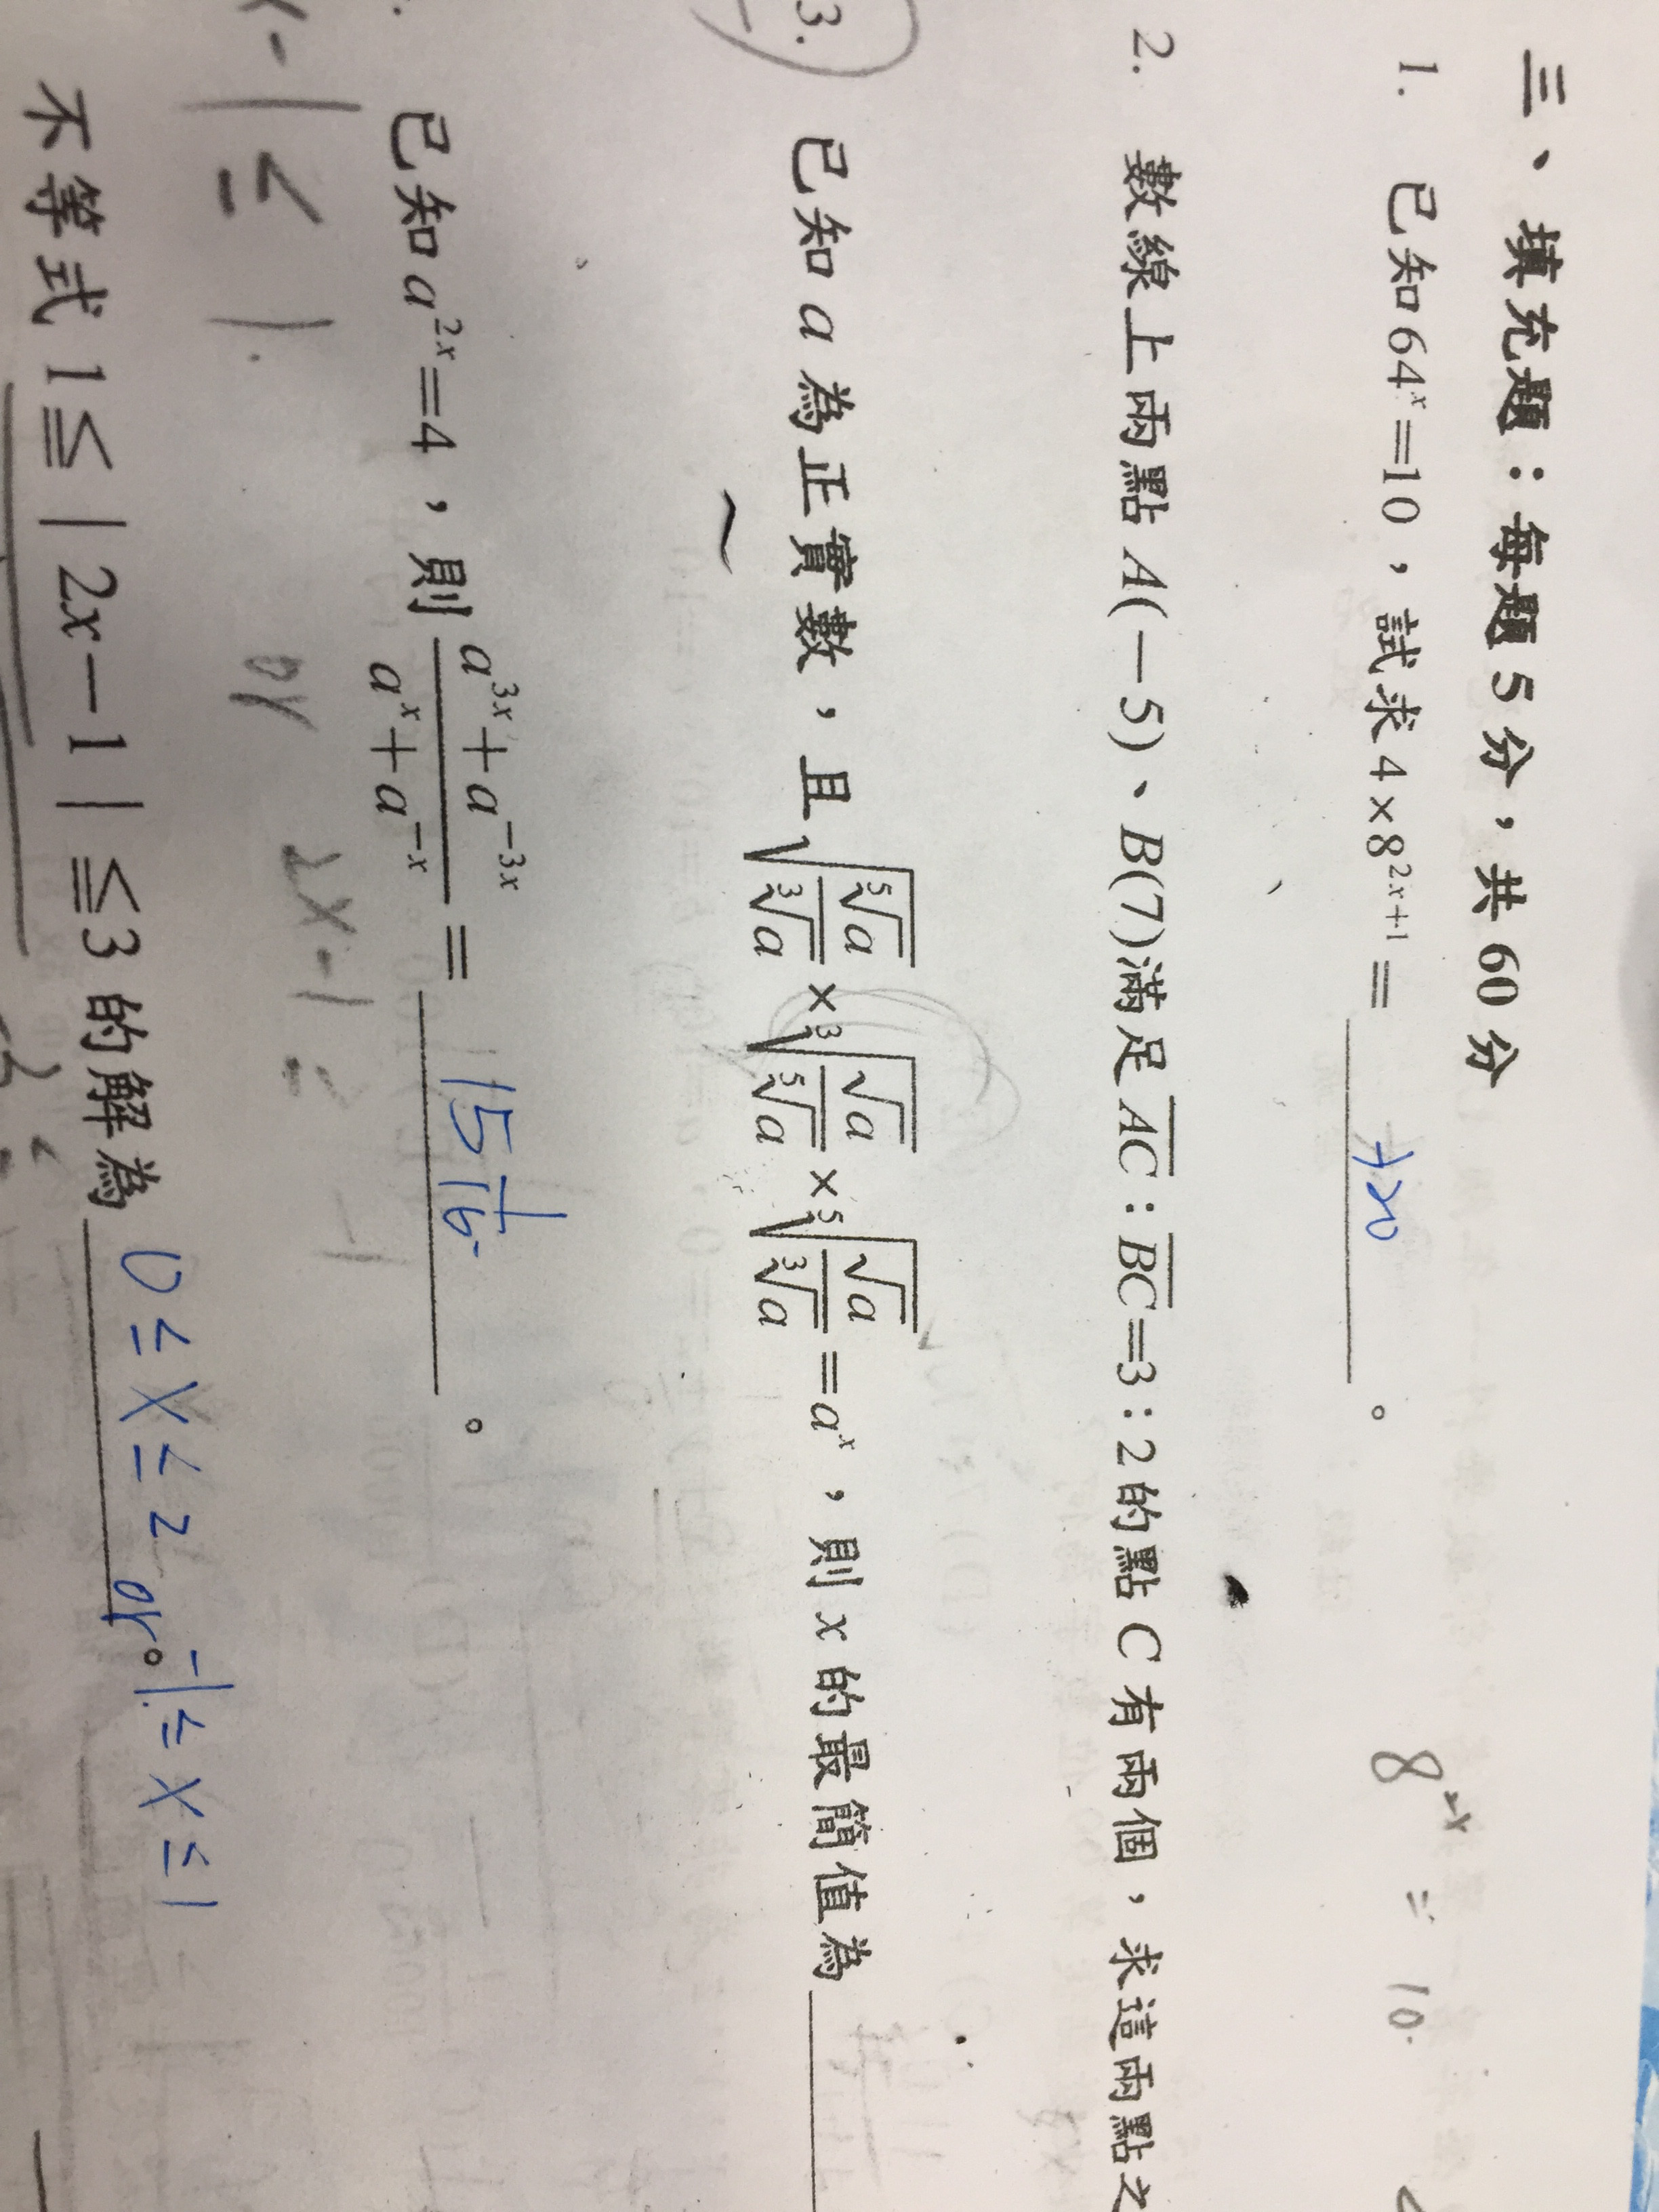 三、填充題:每題5分,共60分
1. 已知64^x=10,試求4×8^{2x+1}=____。 8^{2x} = 10.
2. 數線上兩點A(-5)、B(7)滿足\overline{AC}:\overline{BC}=3:2的點C有兩個,求這兩點之
3. 已知a為正實數,且\sqrt{\frac{\sqrt[5]{a}}{\sqrt[3]{a}}}×\sqrt[3]{\frac{\sqrt{a}}{\sqrt[5]{a}}}×\sqrt[5]{\frac{\sqrt{a}}{\sqrt[3]{a}}}=a^x,則x的最簡值為____
已知a^{2x}=4,則\frac{a^{3x}+a^{-3x}}{a^x+a^{-x}}=____。
x-1 ≤ 1. or 2x-1 ≥ -1
不等式1≤|2x-1|≤3的解為 0≤x≤2 or -1≤x≤1 。